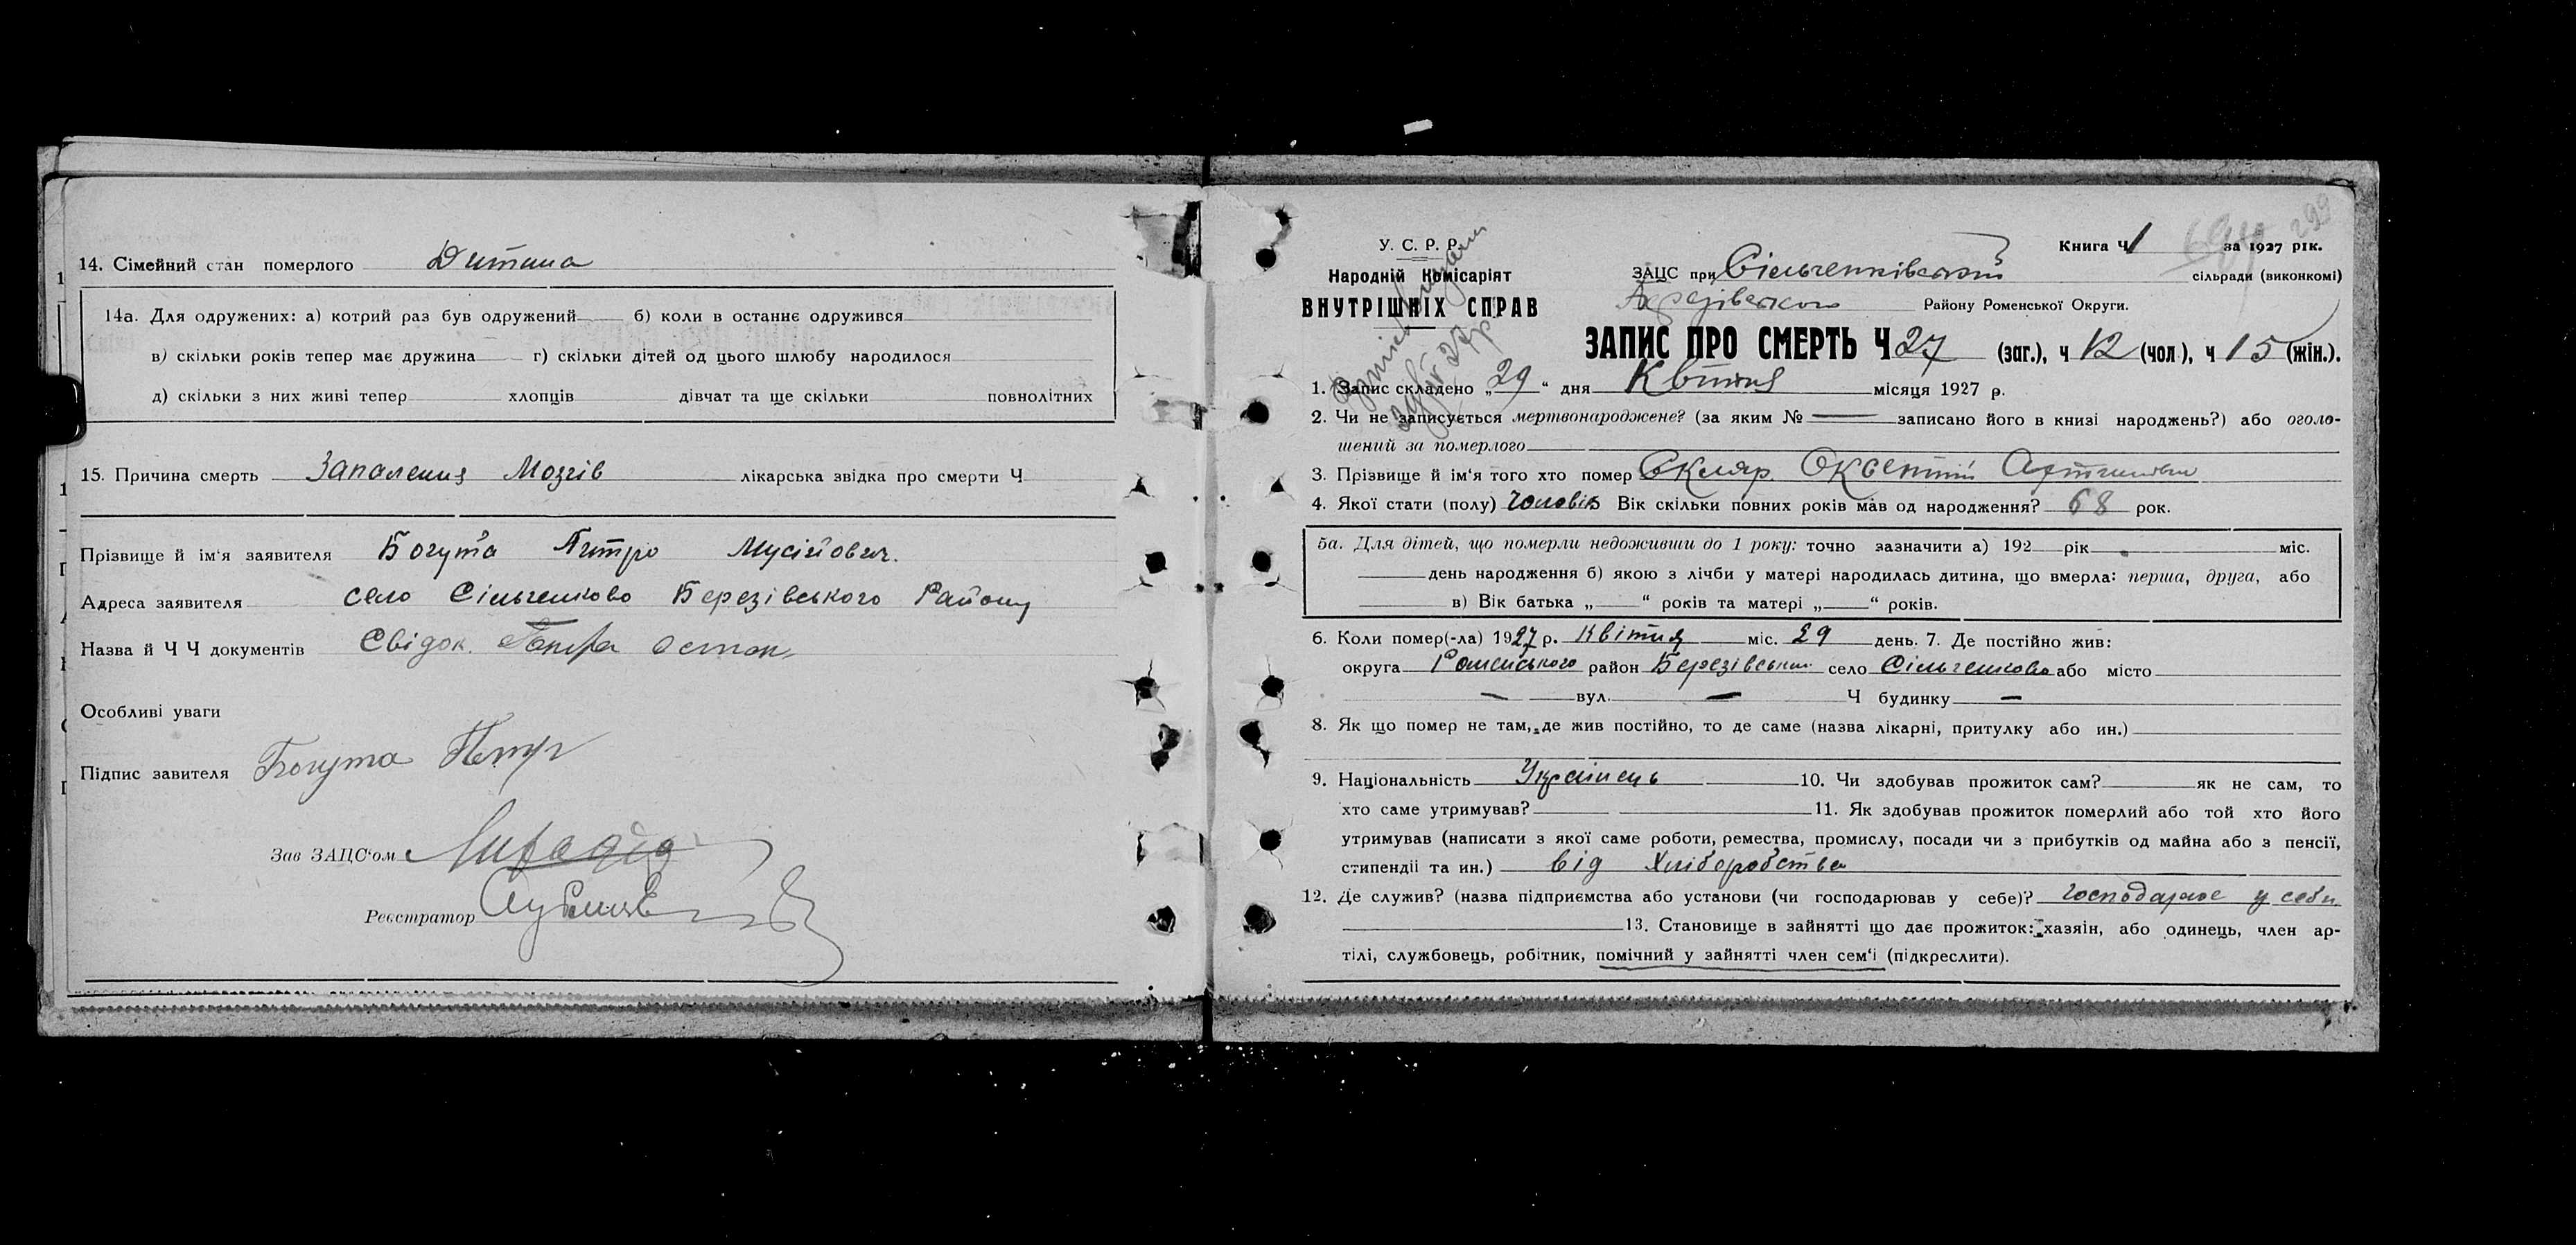 14. Сімейний стан померлого Дитина
14а. Для одружених: а) котрий раз був одружений б) коли в останнє одружився
в) скільки років тепер має дружина г) скільки дітей од цього шлюбу народилося
д) скільки з них живі тепер хлопців дівчат та ще скільки повнолітних
15. Причина смерть Запалення Мозгів лікарська звідка про смерти Ч
Прізвище й ім'я заявителя Богута Питро Мусійович.
Адреса заявителя село Сільченково Березівського Району
Назва й Ч Ч документів Свідок.
Особливі уваги
Підпис завителя Богута Петр
Зав ЗАЦС'ом
Реєстратор
У. С. Р. Р.
Народній Комісаріят
ВНУТРІШНІХ СПРАВ
Книга Ч 1 за 1927 рік.
299
ЗАЦС при Сільченківський сільради (виконкомі)
Району Роменської Округи.
ЗАПИС ПРО СМЕРТЬ Ч 27 (заг.), ч 12 (чол), ч 15 (жін.).
1. Запис складено „29" дня Квітня місяця 1927 р.
2. Чи не записується мертвонароджене? (за яким № записано його в книзі народжень?) або оголо-
шений за померлого
3. Прізвище й ім'я того хто помер Скляр Оксентій
4. Якої стати (полу) Чоловік Вік скільки повних років мав од народження? 68 рок.
5а. Для дітей, що померли недоживши до 1 року: точно зазначити а) 192 рік міс.
день народження б) якою з лічби у матері народилась дитина, що вмерла: перша, друга, або
в) Вік батька „ " років та матері „ " років.
6. Коли помер(-ла) 1927 р. Квітня міс. 29 день. 7. Де постійно жив:
округа Роменського район Березівський село Сільченково або місто
— вул. — Ч будинку —
8. Як що помер не там, де жив постійно, то де саме (назва лікарні, притулку або ин.)
9. Національність Українець 10. Чи здобував прожиток сам? як не сам, то
хто саме утримував? 11. Як здобував прожиток померлий або той хто його
утримував (написати з якої саме роботи, ремества, промислу, посади чи з прибутків од майна або з пенсії,
стипендії та ин.) від Хліборобства
12. Де служив? (назва підприємства або установи (чи господарював у себе)? господарює у себи
13. Становище в зайнятті що дає прожиток: хазяін, або одинець, член ар-
тілі, службовець, робітник, помічний у зайнятті член сем'ї (підкреслити).